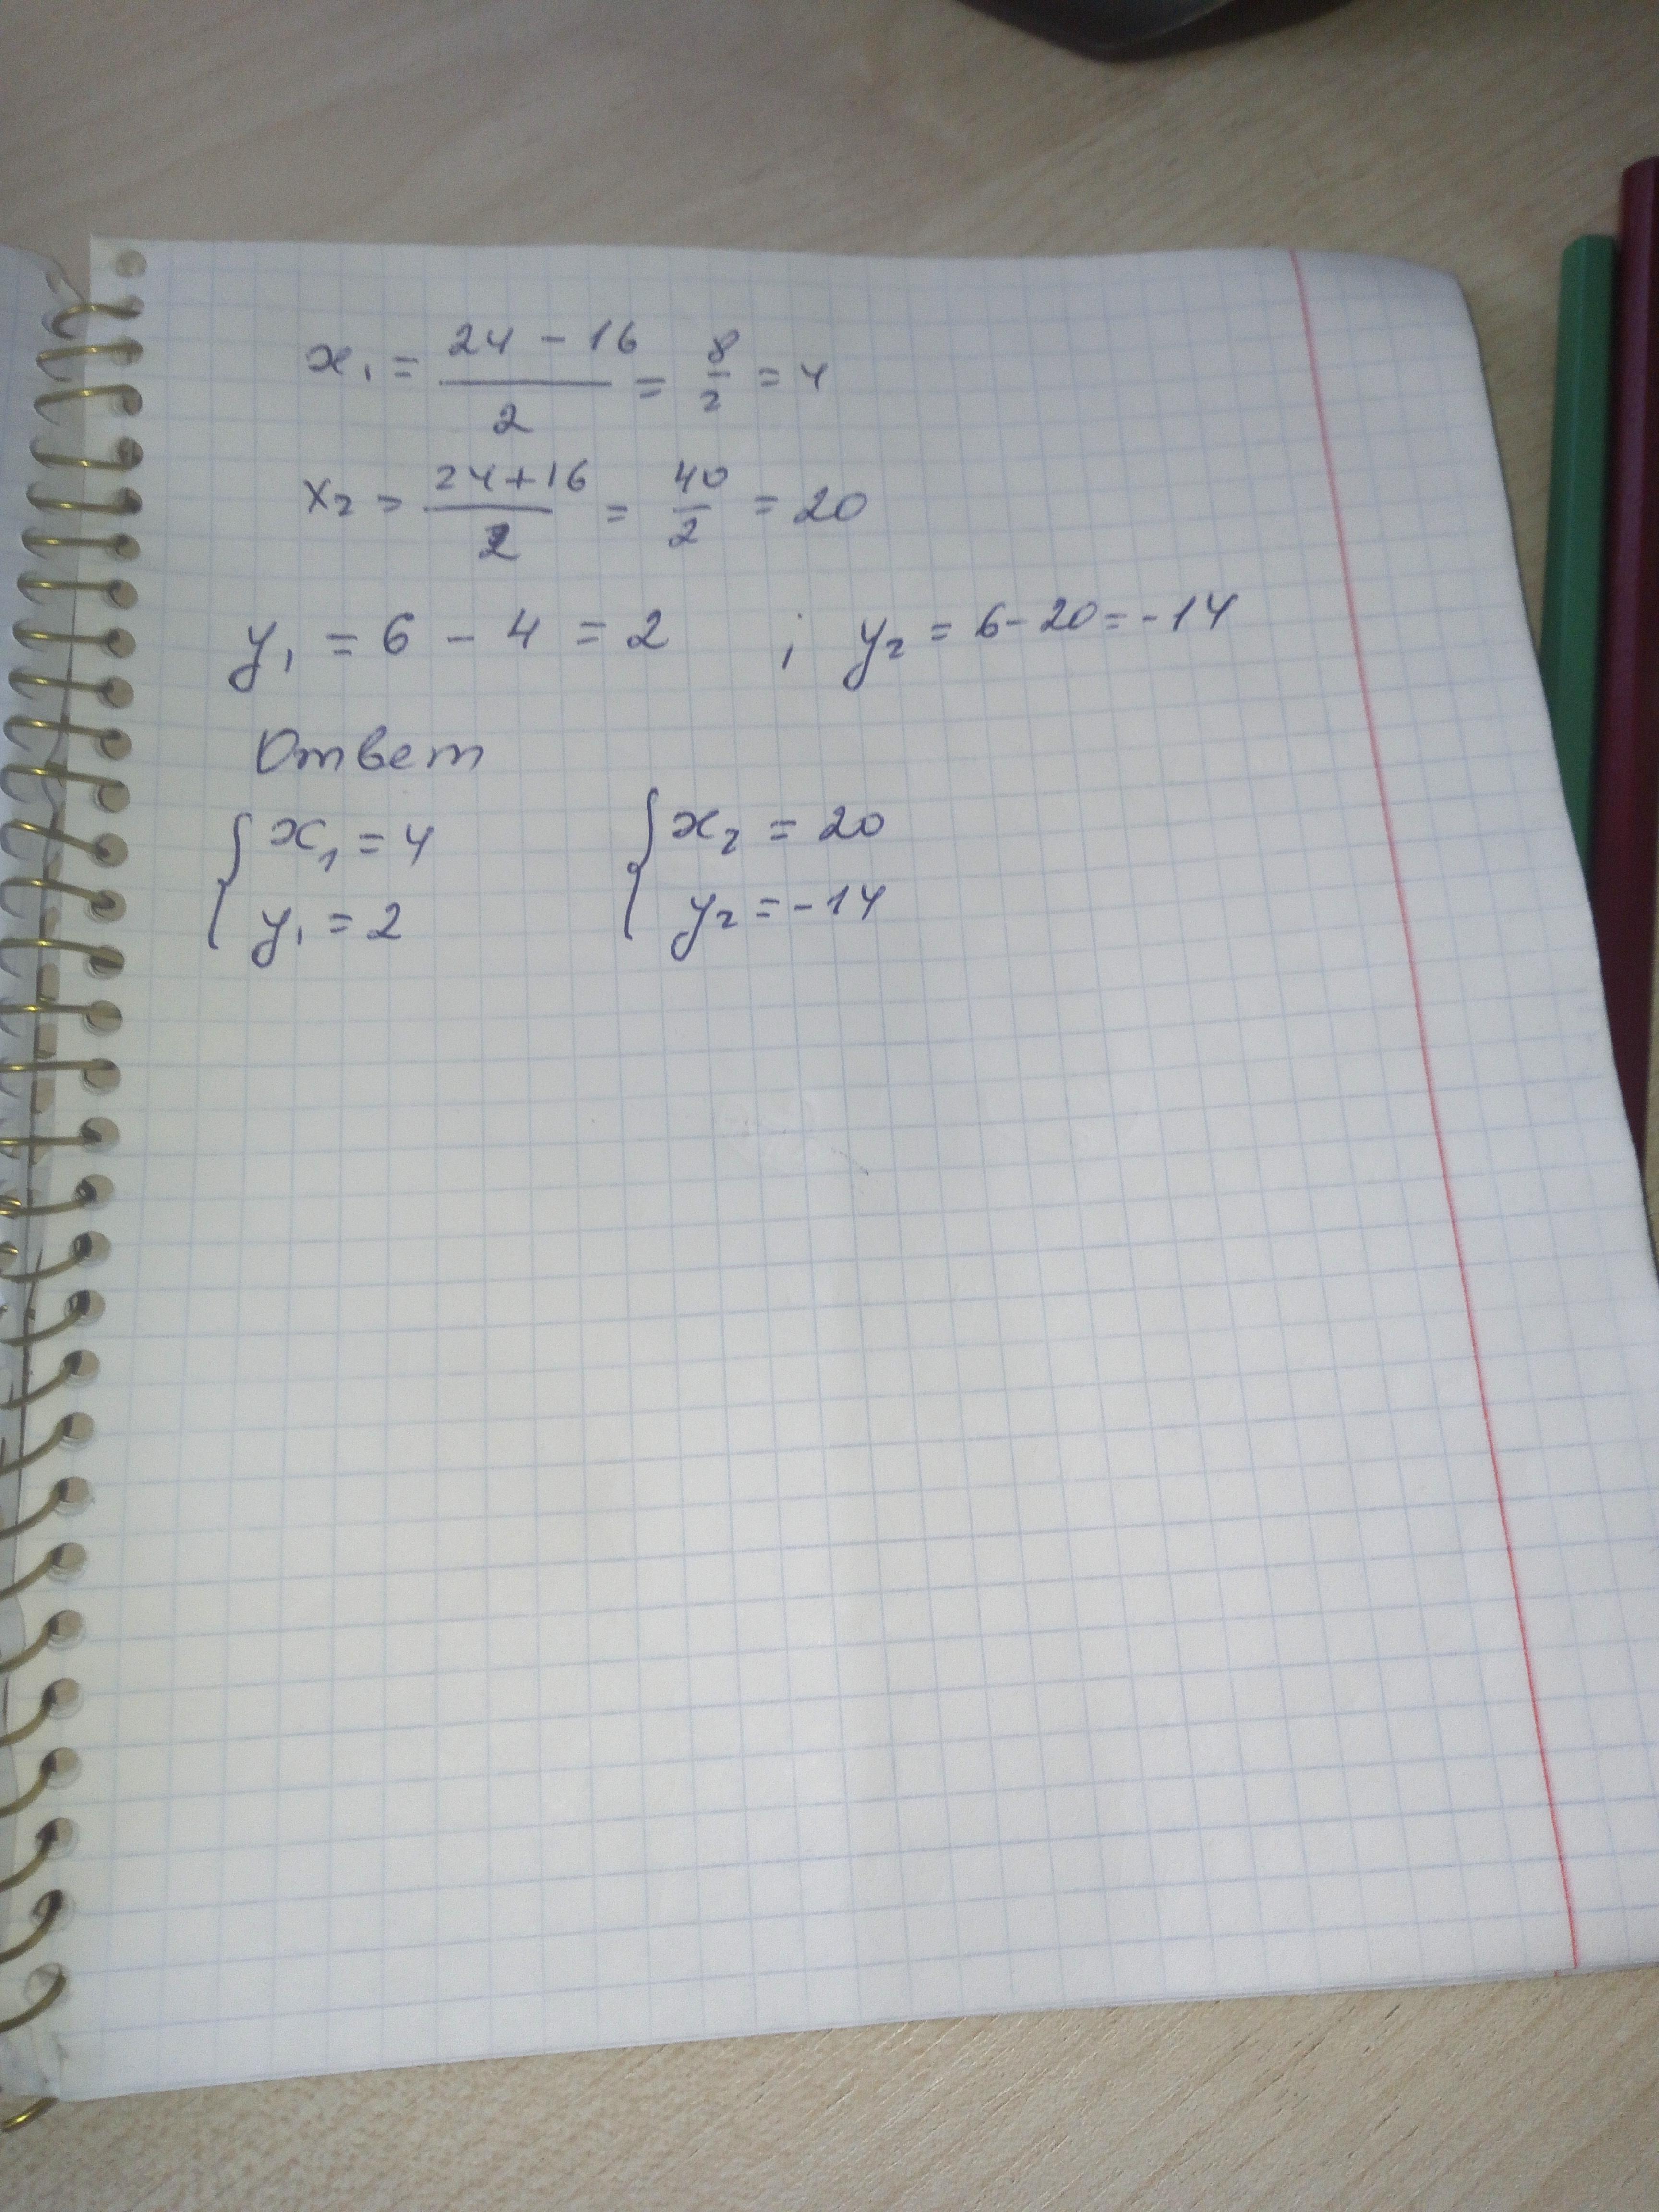 x₁ = (24 - 16)/2 = 8/2 = 4
x₂ = (24+16)/2 = 40/2 = 20
y₁ = 6 - 4 = 2 ; y₂ = 6-20 = -14
Ответ
{ x₁ = 4 { x₂ = 20
y₁ = 2 y₂ = -14